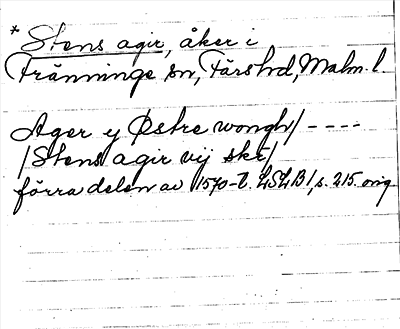 * Stens agir, åker i
Tränninge sn, Färs hd, Malm. l.
Ager y Østre wongh / - - - -
/ Stens agir vij skr /
förra delen av 1570-t. LSLB 1, s. 215. orig.